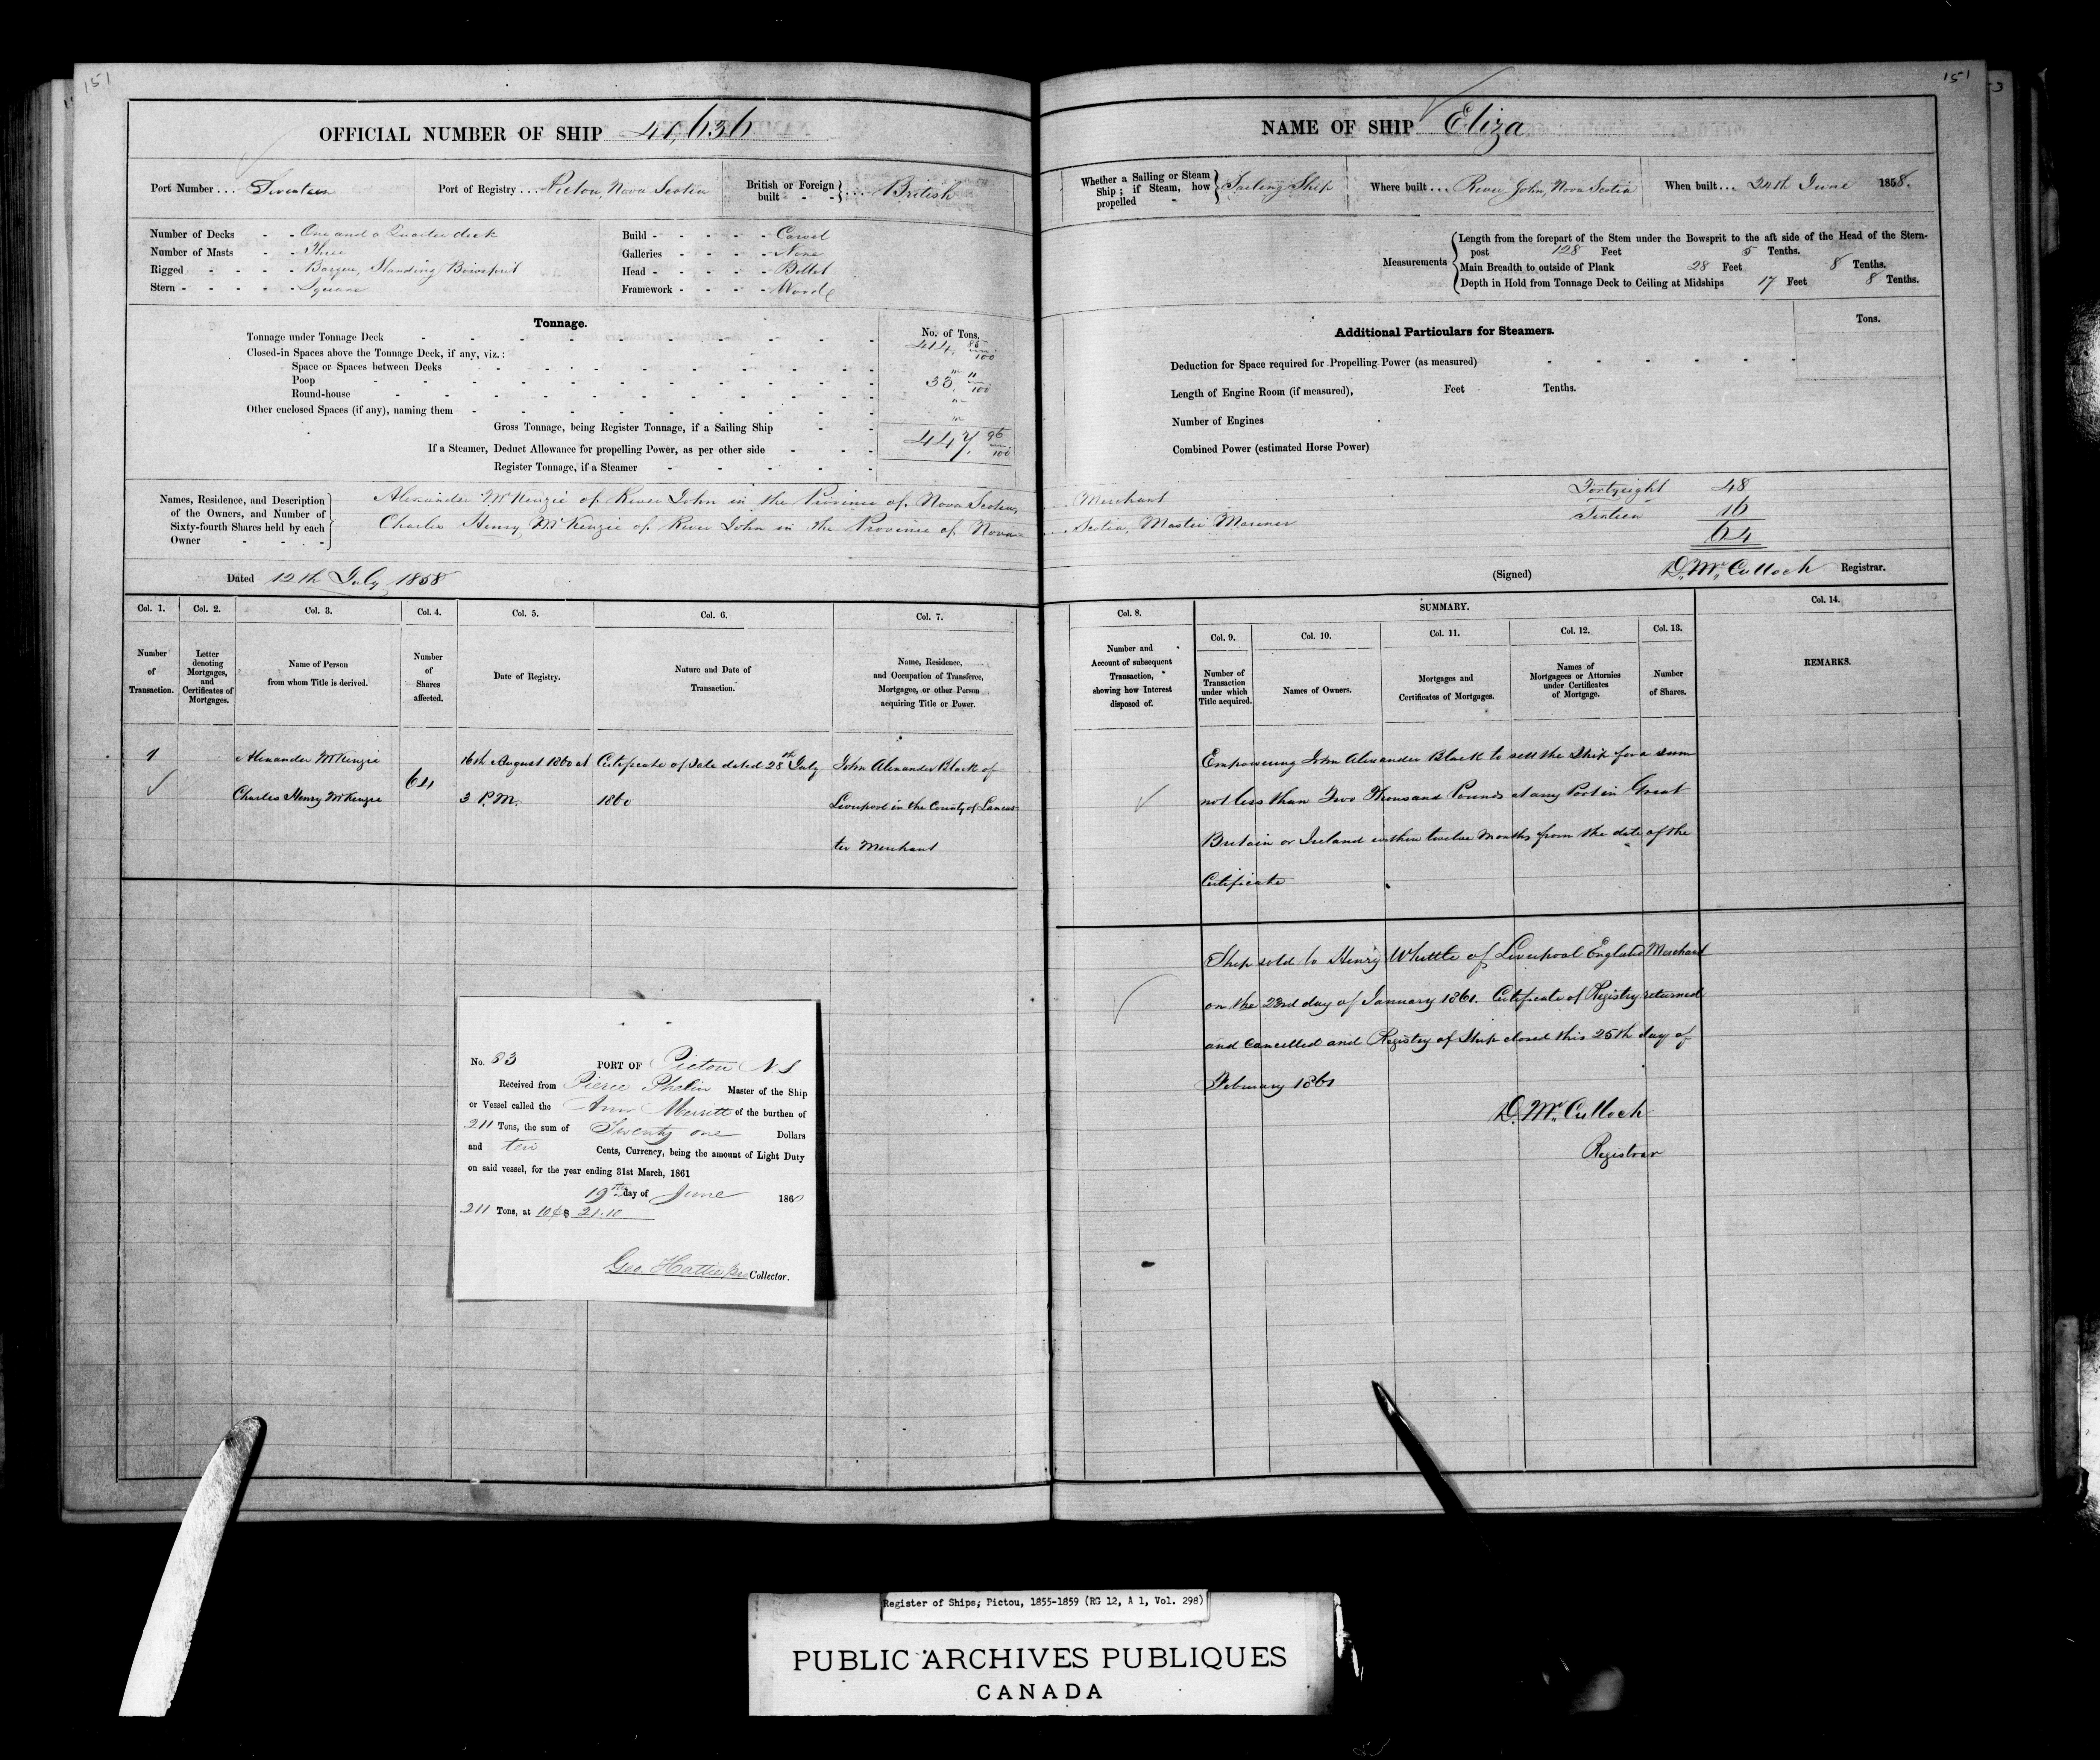 151
OFFICIAL NUMBER OF SHIP 41,636
Port Number ... Seventeen Port of Registry ... Pictou, Nova Scotia British or Foreign built - - } .... British
Number of Decks - - One and a Quarter deck
Number of Masts - - Three
Rigged - - - - Barque, Standing Bowsprit
Stern - - - - - Square
Build - - - - - Carvel
Galleries - - - - None
Head - - - - - Billet
Framework - - - - Wood
Tonnage.
No. of Tons.
Tonnage under Tonnage Deck 414. 85/100
Closed-in Spaces above the Tonnage Deck, if any, viz.:
Space or Spaces between Decks "
Poop 33. 11/100
Round-house "
Other enclosed Spaces (if any), naming them "
Gross Tonnage, being Register Tonnage, if a Sailing Ship 447. 96/100
If a Steamer, Deduct Allowance for propelling Power, as per other side
Register Tonnage, if a Steamer
Names, Residence, and Description of the Owners, and Number of Sixty-fourth Shares held by each Owner
Alexander McKenzie of River John in the Province of Nova Scotia,
Charles Henry McKenzie of River John in the Province of Nova=
Dated 12th July 1858
Col. 1. Col. 2. Col. 3. Col. 4. Col. 5. Col. 6. Col. 7.
Number of Transaction.
Letter denoting Mortgages, and Certificates of Mortgages.
Name of Person from whom Title is derived.
Number of Shares affected.
Date of Registry.
Nature and Date of Transaction.
Name, Residence, and Occupation of Transferee, Mortgagee, or other Person acquiring Title or Power.
1 Alexander McKenzie 16th August 1860 at Certificate of Sale dated 28th July John Alexander Black of
Charles Henry McKenzie 64 3 P.M. 1860 Liverpool in the County of Lancas-
ter Merchant
No. 83 PORT OF Pictou N.S
Received from Pierce Phelin Master of the Ship
or Vessel called the Ann Merritt of the burthen of
211 Tons, the sum of Twenty one Dollars
and ten Cents, Currency, being the amount of Light Duty
on said vessel, for the year ending 31st March, 1861
19th day of June 1860
211 Tons, at 10¢ $ 21.10
Geo. Hattie Collector.
151
NAME OF SHIP Eliza
Whether a Sailing or Steam Ship; if Steam, how propelled - } Sailing Ship Where built ... River John, Nova Scotia When built ... 24th June 1858.
Measurements
Length from the forepart of the Stem under the Bowsprit to the aft side of the Head of the Stern-
post 128 Feet 5 Tenths.
Main Breadth to outside of Plank 28 Feet 8 Tenths.
Depth in Hold from Tonnage Deck to Ceiling at Midships 17 Feet 8 Tenths.
Additional Particulars for Steamers.
Tons.
Deduction for Space required for Propelling Power (as measured)
Length of Engine Room (if measured), Feet Tenths.
Number of Engines
Combined Power (estimated Horse Power)
Merchant Fortyeight 48
Scotia, Master Mariner Sixteen 16
64
(Signed) D. McCulloch Registrar.
Col. 8. SUMMARY. Col. 14.
Col. 9. Col. 10. Col. 11. Col. 12. Col. 13.
Number and Account of subsequent Transaction, showing how Interest disposed of.
Number of Transaction under which Title acquired.
Names of Owners.
Mortgages and Certificates of Mortgages.
Names of Mortgagees or Attornies under Certificates of Mortgage.
Number of Shares.
REMARKS.
Empowering John Alexander Black to sell the Ship for a sum
not less than Two Thousand Pounds at any Port in Great
Britain or Ireland within twelve Months from the date of the
Certificate
Ship sold to Henry Whittle of Liverpool England Merchant
on the 23rd day of January 1861. Certificate of Registry returned
and Cancelled and Registry of Ship closed this 25th day of
February 1861
D. McCulloch
Registrar
Register of Ships; Pictou, 1855-1859 (RG 12, A 1, Vol. 298)
PUBLIC ARCHIVES PUBLIQUES
CANADA